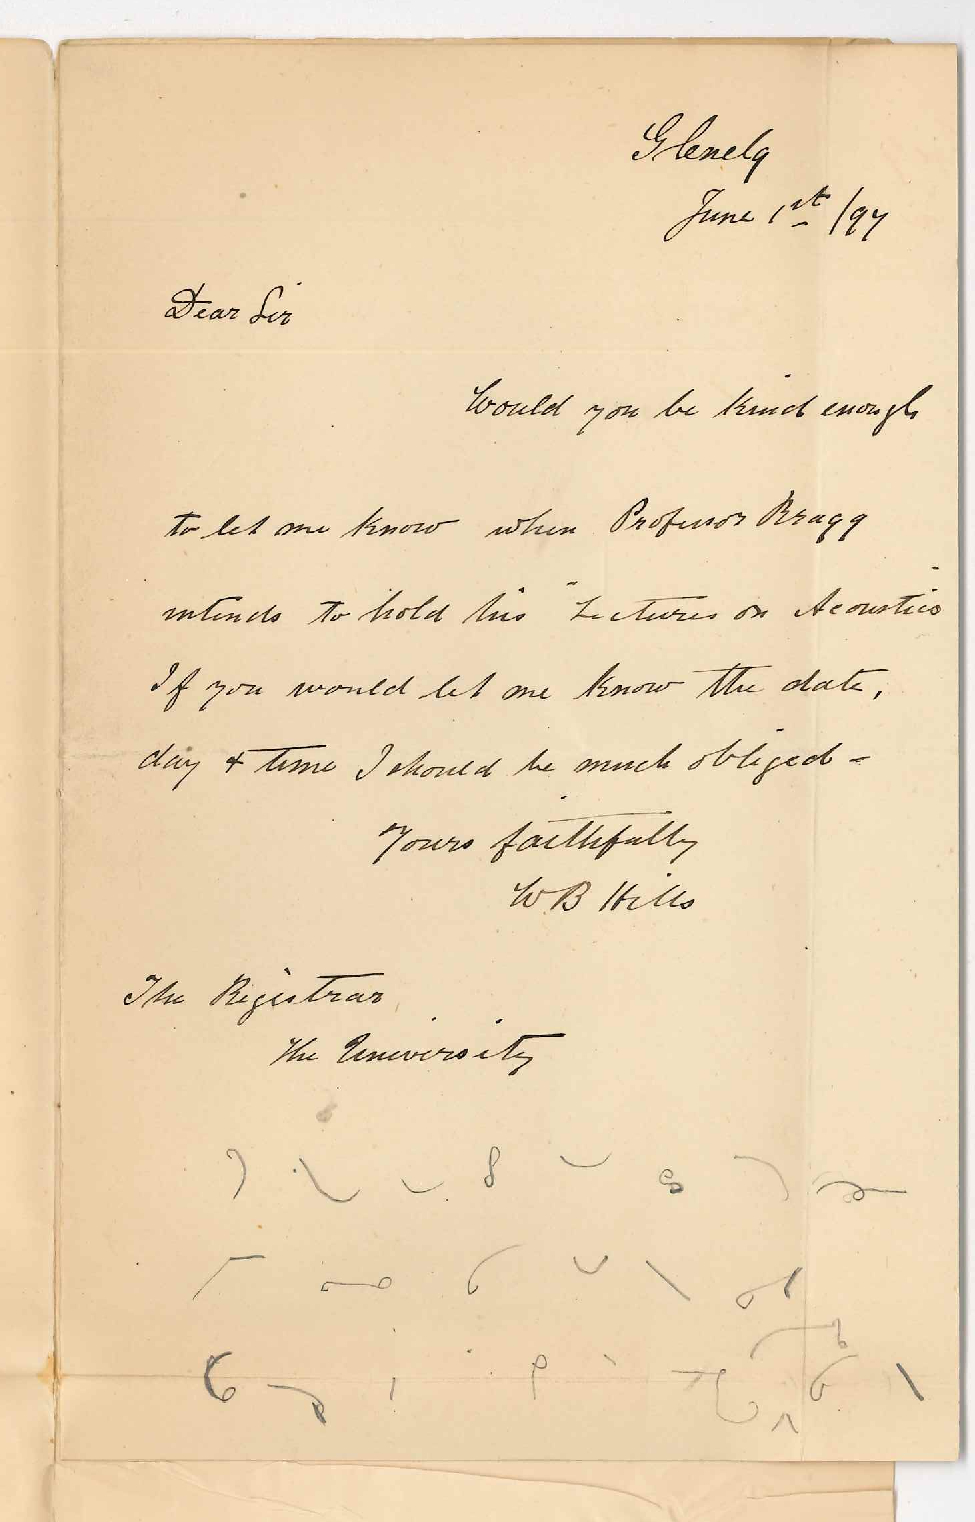 Glenelg
June 1st /97
Dear Sir
Would you be kind enough
to let me know when Professor Bragg
intends to hold his "Lectures on Acoustics
If you would let me know the date,
day & time I should be much obliged -
Yours faithfully
W B Hills
The Registrar
The University